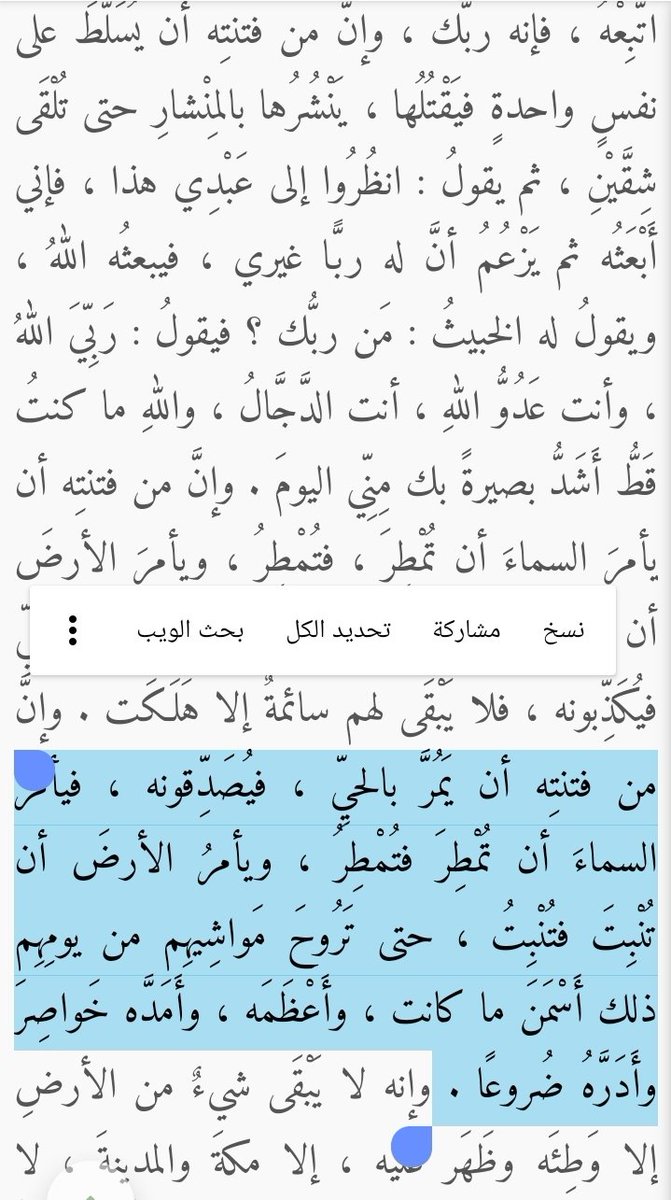 اتَّبِعْهُ ، فإنه ربُّك ، وإنَّ من فتنتِه أن يُسَلَّطَ على
نفسٍ واحدةٍ فيَقْتُلُها ، يَنْشُرُها بالمِنْشارِ حتى تُلْقَى
شِقَّيْنِ ، ثم يقولُ : انظُرُوا إلى عَبْدِي هذا ، فإني
أَبْعَثُه ثم يَزْعُمُ أنَّ له ربًّا غيري ، فيبعثُه اللهُ ،
ويقولُ له الخبيثُ : مَن ربُّك ؟ فيقولُ : رَبِّيَ اللهُ
، وأنت عَدُوُّ اللهِ ، أنت الدَّجَّالُ ، واللهِ ما كنتُ
قَطُّ أَشَدُّ بصيرةً بك مِنِّي اليومَ . وإنَّ من فتنتِه أن
يأمرَ السماءَ أن تُمْطِرَ ، فتُمْطِرُ ، ويأمرَ الأرضَ
أن
نسخ مشاركة تحديد الكل بحث الويب
فيُكَذِّبونه ، فلا يَبْقَى لهم سائمةٌ إلا هَلَكَت . وإنَّ
من فتنتِه أن يَمُرَّ بالحيِّ ، فيُصَدِّقونه ، فيأمرُ
السماءَ أن تُمْطِرَ فتُمْطِرُ ، ويأمرُ الأرضَ أن
تُنْبِتَ فتُنْبِتُ ، حتى تَرُوحَ مَواشِيهِم من يومِهِم
ذلك أَسْمَنَ ما كانت ، وأَعْظَمَه ، وأَمَدَّه خَواصِرَ
وأَدَرَّهُ ضُروعًا . وإنه لا يَبْقَى شيءٌ من الأرضِ
إلا وَطِئَه وظَهَر عليه ، إلا مكةَ والمدينةَ ، لا